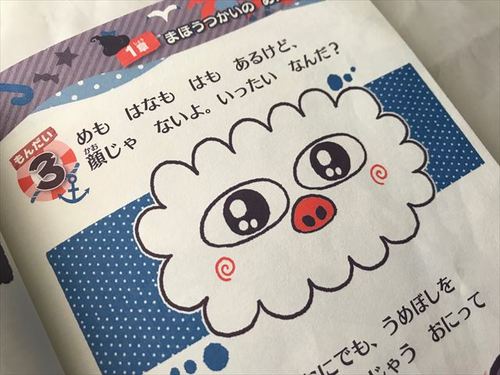 1章 まほうつかいの
もんだい
3
めも はなも はも あるけど、
顔じゃ ないよ。いったい なんだ?
かお
にでも、うめぼしを
じゃう おにって